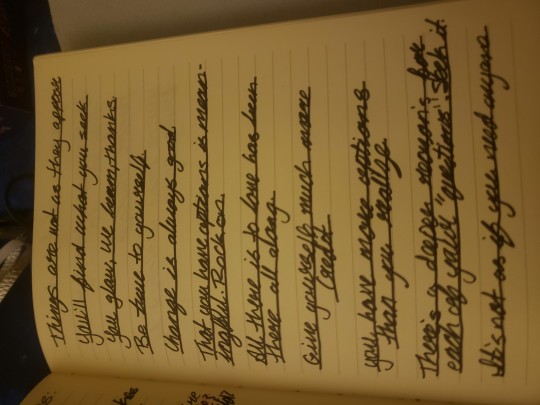 Things are not as they appear
You'll find what you seek
You glow, we beam, thanks
Be true to yourself
Change is always good
That you have options is mean-
ingful. Rock on
All there is to love has been
there all along
Give yourself much more
credit
you have more options
than you realize
There's a deeper reason's for
each of your "questions" seek it.
It's not as if you need anyone